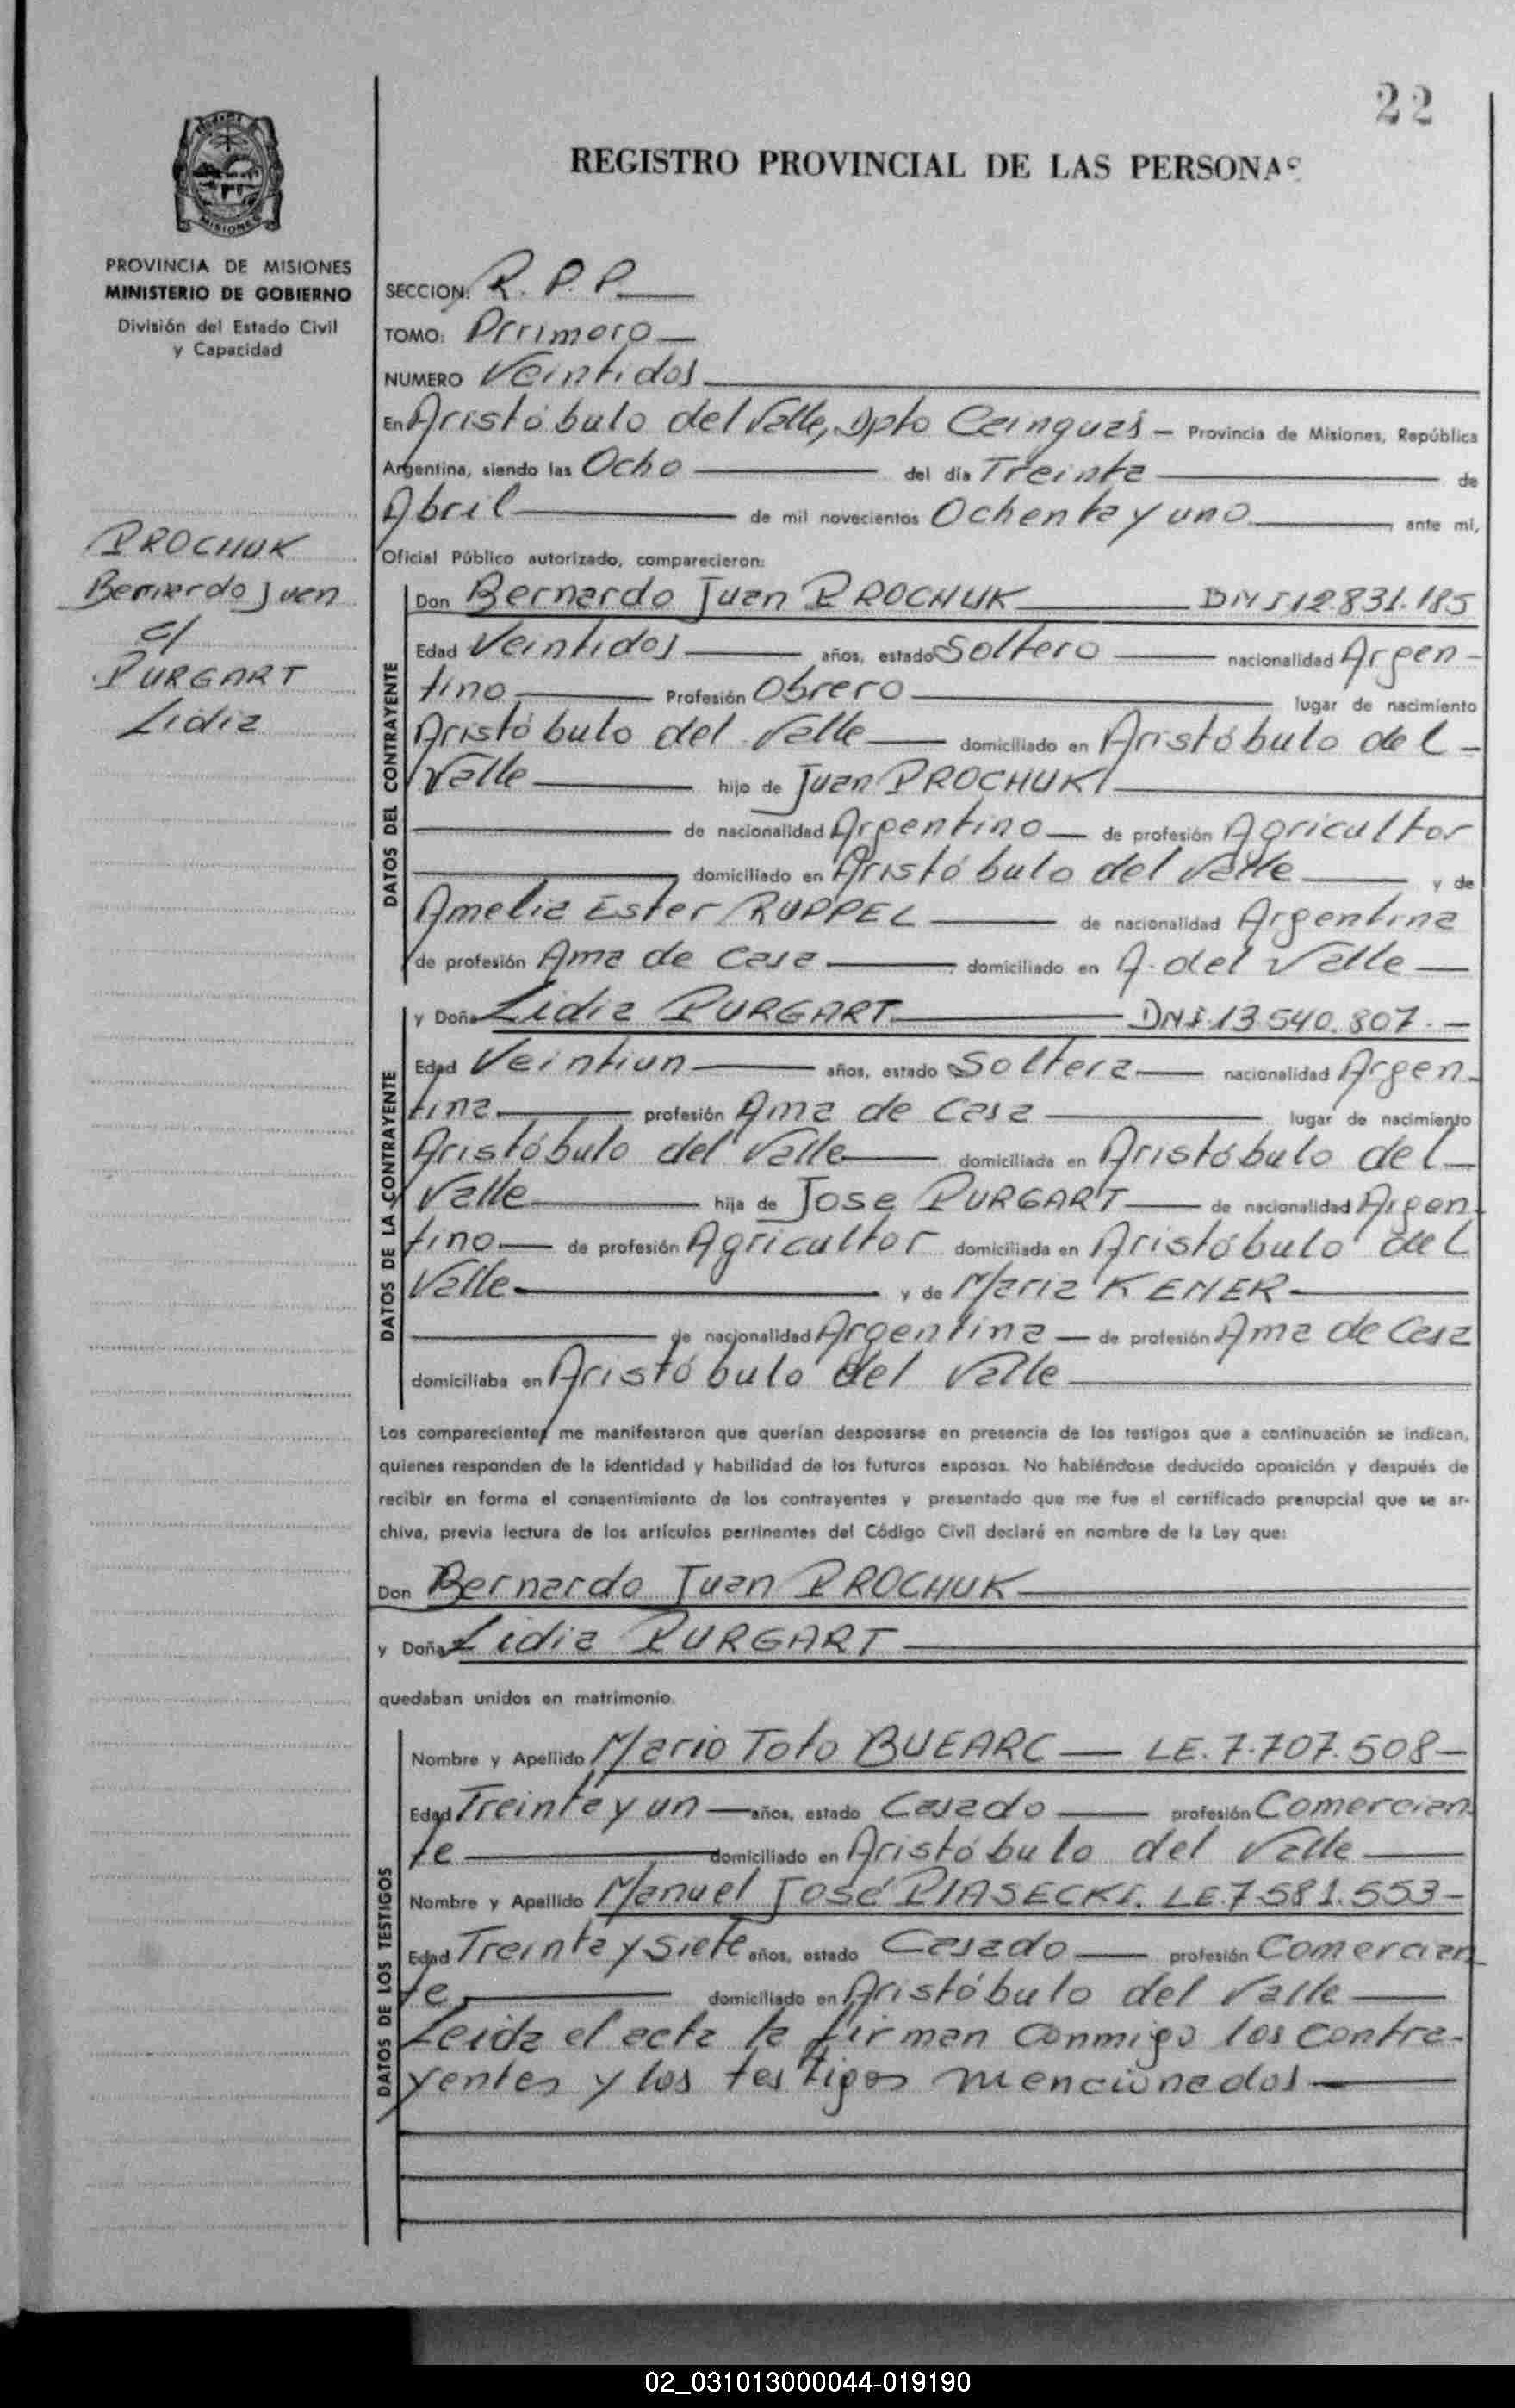 22
REGISTRO PROVINCIAL DE LAS PERSONAS
MISIONES
PROVINCIA DE MISIONES
MINISTERIO DE GOBIERNO
División del Estado Civil
y Capacidad
PROCHUK
Bernardo Juan
c/
PURGART
Lidia
SECCION: R. P. P.
TOMO: Prrimero
NUMERO Veintidos
En Aristóbulo del Valle, Dpto Cainguas - Provincia de Misiones, República
Argentina, siendo las Ocho del día Treinta de
Abril de mil novecientos Ochenta y uno ante mi,
Oficial Público autorizado, comparecieron:
DATOS DEL CONTRAYENTE
Don Bernardo Juan PROCHUK DNI 12.831.185
Edad Veintidos años, estado Soltero nacionalidad Argen-
tino Profesión Obrero lugar de nacimiento
Aristóbulo del Valle domiciliado en Aristóbulo del -
Valle hijo de Juan PROCHUK
de nacionalidad Argentino de profesión Agricultor
domiciliado en Aristóbulo del Valle y de
Amelia Ester RUPPEL de nacionalidad Argentina
de profesión Ama de Casa domiciliado en A. del Valle
DATOS DE LA CONTRAYENTE
y Doña Lidia PURGART DNI 13.540.807.-
Edad Veintiun años, estado Soltera nacionalidad Argen-
tina profesión Ama de Casa lugar de nacimiento
Aristóbulo del Valle domiciliada en Aristóbulo del
Valle hija de Jose PURGART de nacionalidad Argen
tino de profesión Agricultor domiciliada en Aristóbulo del
Valle y de Maria KENER
de nacionalidad Argentina de profesión Ama de Casa
domiciliaba en Aristóbulo del Valle
Los comparecientes me manifestaron que querían desposarse en presencia de los testigos que a continuación se indican,
quienes responden de la identidad y habilidad de los futuros esposos. No habiéndose deducido oposición y después de
recibir en forma el consentimiento de los contrayentes y presentado que me fue el certificado prenupcial que se ar-
chiva, previa lectura de los artículos pertinentes del Código Civil declaré en nombre de la Ley que:
Don Bernardo Juan PROCHUK
y Doña Lidia PURGART
quedaban unidos en matrimonio.
DATOS DE LOS TESTIGOS
Nombre y Apellido Mario Toto BUEARC LE. 7.707.508-
Edad Treinta y un años, estado Casado profesión Comercian
te domiciliado en Aristóbulo del Valle
Nombre y Apellido Manuel José PIASECKI. LE. 7.581.553-
Edad Treinta y Siete años, estado Casado profesión Comercian
te domiciliado en Aristóbulo del Valle
Leida el acta la firman conmigo los contra-
yentes y los testigos mencionados
02_031013000044-019190